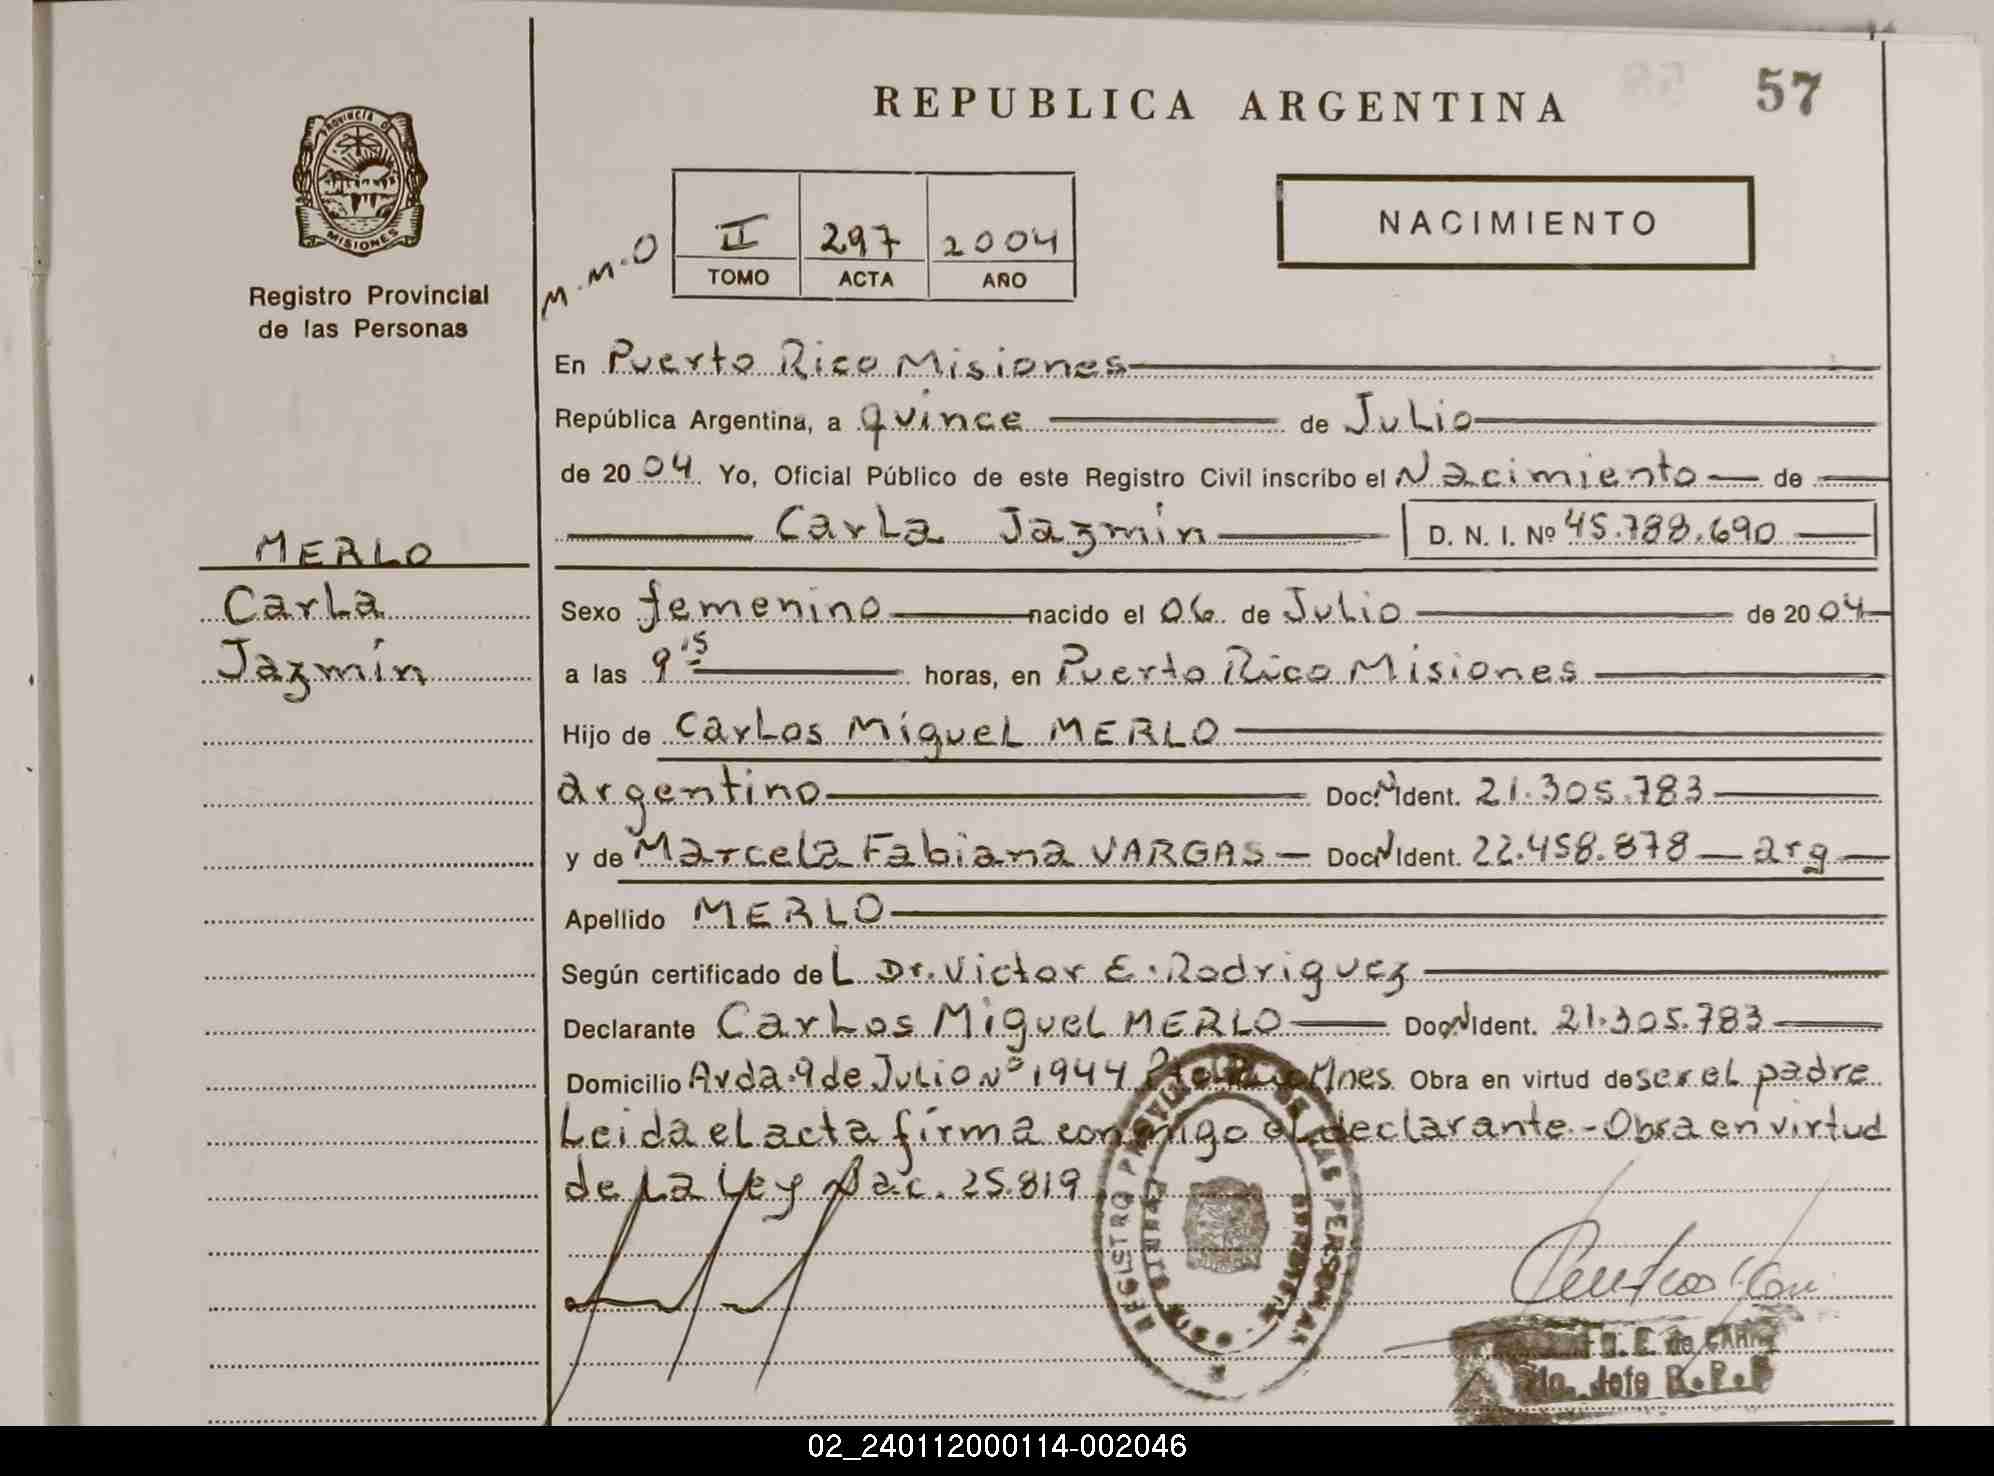 REPUBLICA ARGENTINA
57
PROVINCIA DE
MISIONES
Registro Provincial
de las Personas
M.M.O
II 297 2004
TOMO ACTA AÑO
NACIMIENTO
En Puerto Rico Misiones
República Argentina, a quince de Julio
de 2004. Yo, Oficial Público de este Registro Civil inscribo el Nacimiento de
Carla Jazmín D. N. I. Nº 45.788.690
MERLO
Carla
Jazmín
Sexo femenino nacido el 06 de Julio de 2004
a las 9 15 horas, en Puerto Rico Misiones
Hijo de Carlos Miguel MERLO
argentino Doc. N Ident. 21.305.783
y de Marcela Fabiana VARGAS Doc. N Ident. 22.458.878 arg
Apellido MERLO
Según certificado del Dr. Victor E. Rodriguez
Declarante Carlos Miguel MERLO Doc. N Ident. 21.305.783
Domicilio Avda. 9 de Julio Nº 1944 Pto. Rico Mnes. Obra en virtud de ser el padre
Leida el acta firma conmigo el declarante.- Obra en virtud
de la Ley Nac. 25.819
REGISTRO PROVINCIAL DE LAS PERSONAS
MISIONES
E. de
Jefe R.P.P
02_240112000114-002046